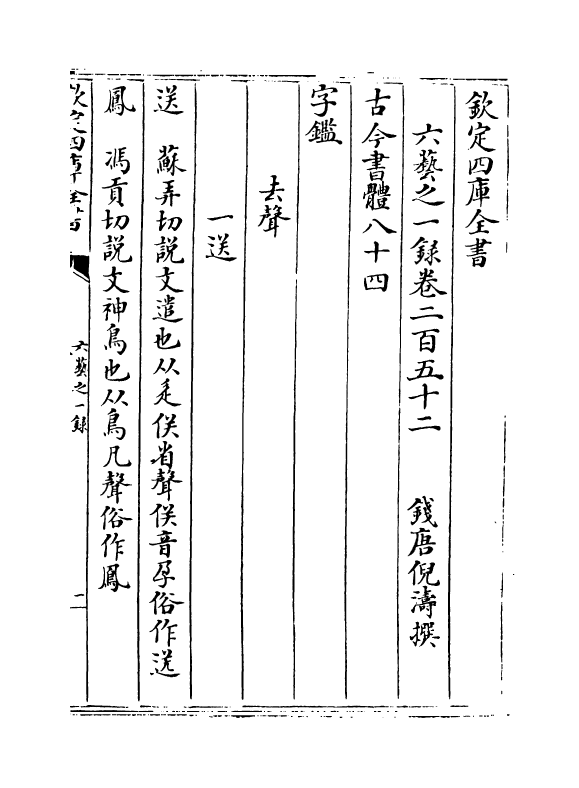 欽定四庫全書
六藝之一録卷二百五十二　錢唐倪濤撰
古今書體八十四
字鑑
去聲
一送
送　蘇弄切説文遣也从辵倂省聲倂音孕俗作送
鳳　馮貢切説文神鳥也从鳥凡聲俗作鳳
欽定四庫全書
六藝之一録
二